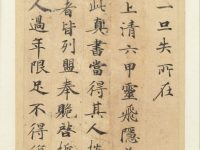 一旦失所在
上清六甲靈飛隱
此真書當得其人
者皆列盟奉貺啓
人過年限足不得